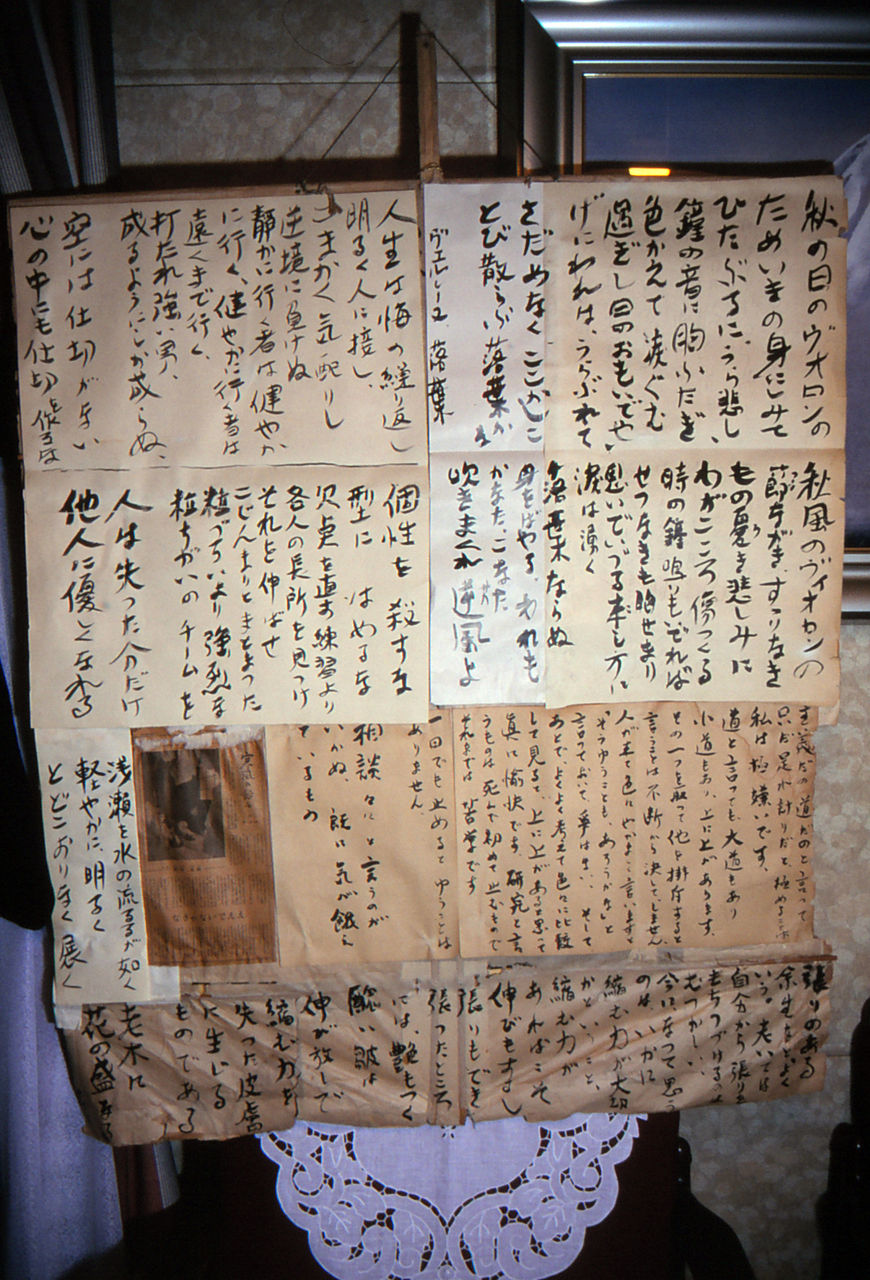 秋の日のヴオロンの
ためいきの身にしみて
ひたぶるに、うら悲し、
鐘の音に胸ふたぎ
色かえて涙ぐむ
過ぎし日のおもいでや、
げにわれは、うらぶれて
さだめなくここかしこ
とび散らふ落葉かな
ヴェルレーヌ、落葉
秋風のヴィオロンの
節ながきすすりなき
もの憂き悲しみに
わがこころ傷つくる
時の鐘鳴りもいでれば
せつなきも胸せまり
思いでいづる来し方に
涙は湧く
落葉ならぬ
身をばやる、われも
かなた、こなた
吹きまくれ逆風よ
人生は悔の繰り返し
明るく人に接し、
こまかく気配りし
逆境に負けぬ
静かに行く者は健やか
に行く、健やかに行く者は
遠くまで行く、
打たれ強い男、
成るようにしか成らぬ、
空には仕切がない
心の中にも仕切を作るな
個性を殺すな
型にはめるな
欠点を直す練習より
各人の長所を見つけ
それを伸ばせ
こじんまりとまとまった
粒ぞろいより強烈な
粒ちがいのチームを
人は失った分だけ
他人に優しくなれる
主義だの道だのと言って
只だ是れ計りだと極めることは
私は極嫌いです、
道と言っても、大道もあり
小道もあり、上に上があります、
その一つを取って他を排斥すると
言うことは不断から決して、しません、
人が来て色々やかましく言いますと
「そうゆうことも、あろうかな」と
言っておいて、争はない、そして
あとで、よくよく考えて色々に比較
して見ると、上に上があると思って
真に愉快です、研究と言
うものは死んで初めて止むもので
それまでは苦学です
一回でも止めるとゆうことは
ありません、
相談々々と言うのが
いかぬ、既に気が餓え
ているもの
なさけないでええ
浅瀬を水の流るるが如く
軽やかに、明るく
とどこおりなく展く
張りのある
余生をとよく
いう。老いては
自分から張りを
もちつづけるのは
むつかしい、
今になって思う
のは、いかに
縮む力が大切
かということ、
縮む力が
あればこそ
伸びもすまし
張りもでき
張ったところ
には、艶もつく
醜い皺は
伸が放しで
縮む力を
失った皮膚
に生じる
ものである
老木に
花の盛なる